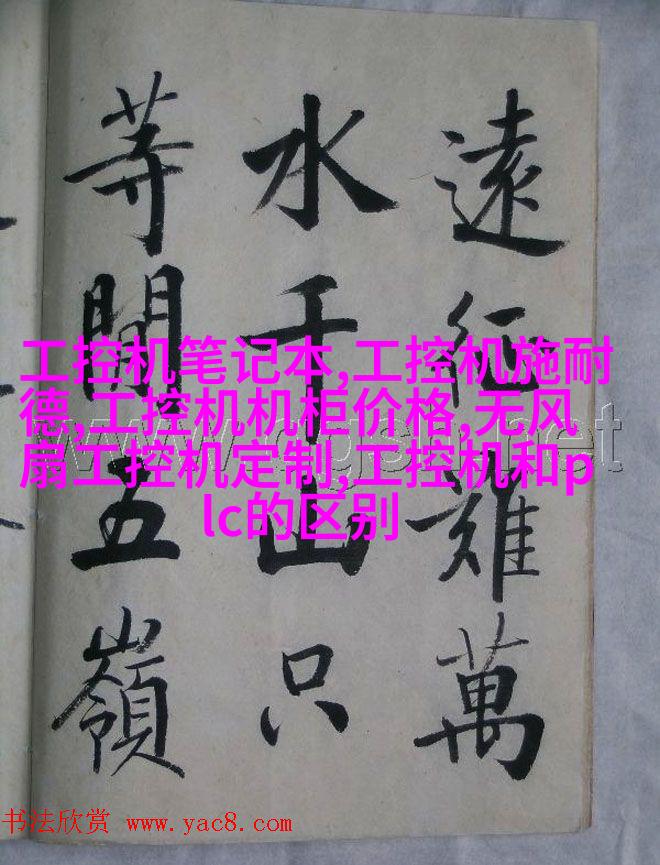 遠征難萬
水千山只
等閒五嶺
工控机笔记本,工控机施耐
德,工控机机柜价格,无风
扇工控机定制,工控机和p
lc的区别
书法欣赏 www.yac8.com